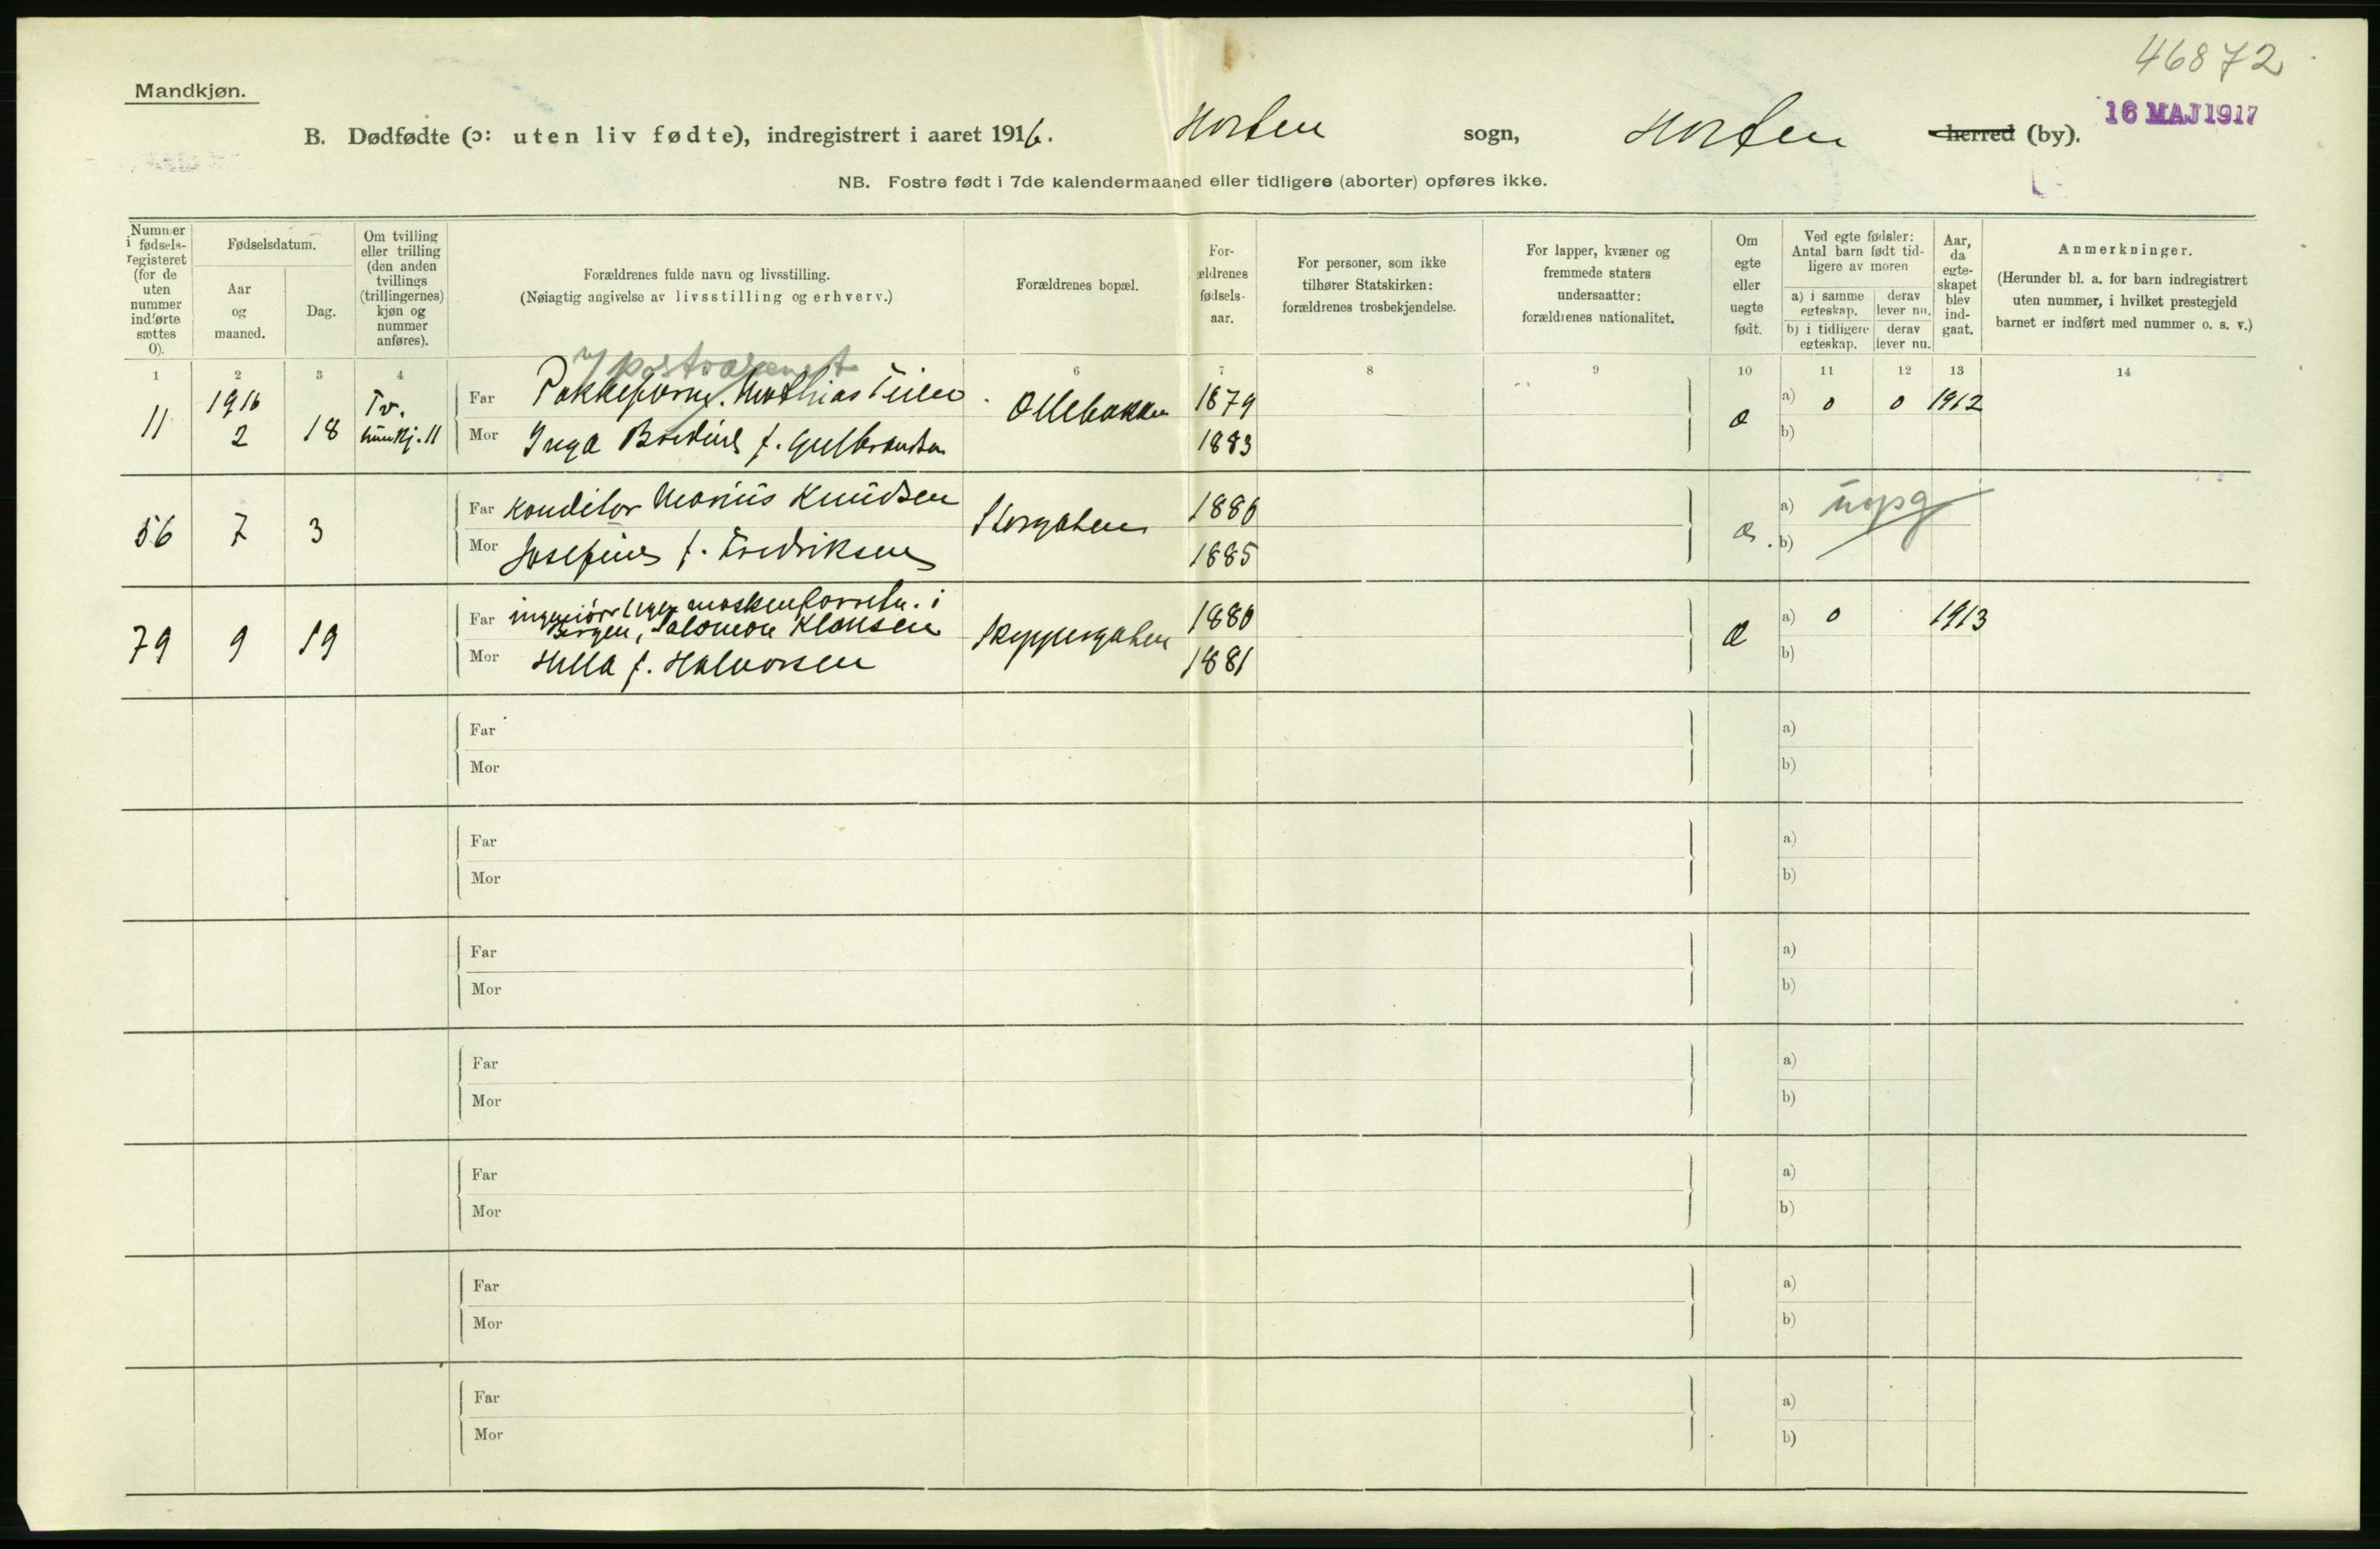 46872
Mandkjøn.
16 MAJ 1917
B. Dødfødte (ɔ: uten liv fødte), indregistrert i aaret 1916. Horten sogn, Horten herred (by).
NB. Fostre født i 7de kalendermaaned eller tidligere (aborter) opføres ikke.
Nummer i fødsels-registeret (for de uten nummer indførte sættes 0).
Fødselsdatum.
Aar og maaned.
Dag.
Om tvilling eller trilling (den anden tvillings (trillingernes) kjøn og nummer anføres).
Forældrenes fulde navn og livsstilling.
(Nøiagtig angivelse av livsstilling og erhverv.)
Forældrenes bopæl.
For-ældrenes fødsels-aar.
For personer, som ikke tilhører Statskirken: forældrenes trosbekjendelse.
For lapper, kvæner og fremmede staters undersaatter: forældrenes nationalitet.
Om egte eller uegte født.
Ved egte fødsler: Antal barn født tidligere av moren
a) i samme egteskap. derav lever nu.
b) i tidligere egteskap. derav lever nu.
Aar, da egte-skapet blev ind-gaat.
Anmerkninger.
(Herunder bl. a. for barn indregistrert uten nummer, i hvilket prestegjeld barnet er indført med nummer o. s. v.)
1 2 3 4 6 7 8 9 10 11 12 13 14
v/ postvæsenet
11 1916 2 18 Tv. kvinkj. 11 Far Mathias Teien Ollebakken 1879 æ a) 0 0 1912
Mor Inga Bredine f. Gulbrandsen 1883 b)
56 7 3 Far Konditor Marius Knudsen Storgaten 1886 æ. a) uopg
Mor Josefine f. Fredriksen 1885 b)
79 9 19 Far ingeniør maskenforretn. i
Bergen, Salomon Klausen Skippergaten 1880 æ a) 0 1913
Mor Hilla f. Halvorsen 1881 b)
Far a)
Mor b)
Far a)
Mor b)
Far a)
Mor b)
Far a)
Mor b)
Far a)
Mor b)
Far a)
Mor b)
Far a)
Mor b)